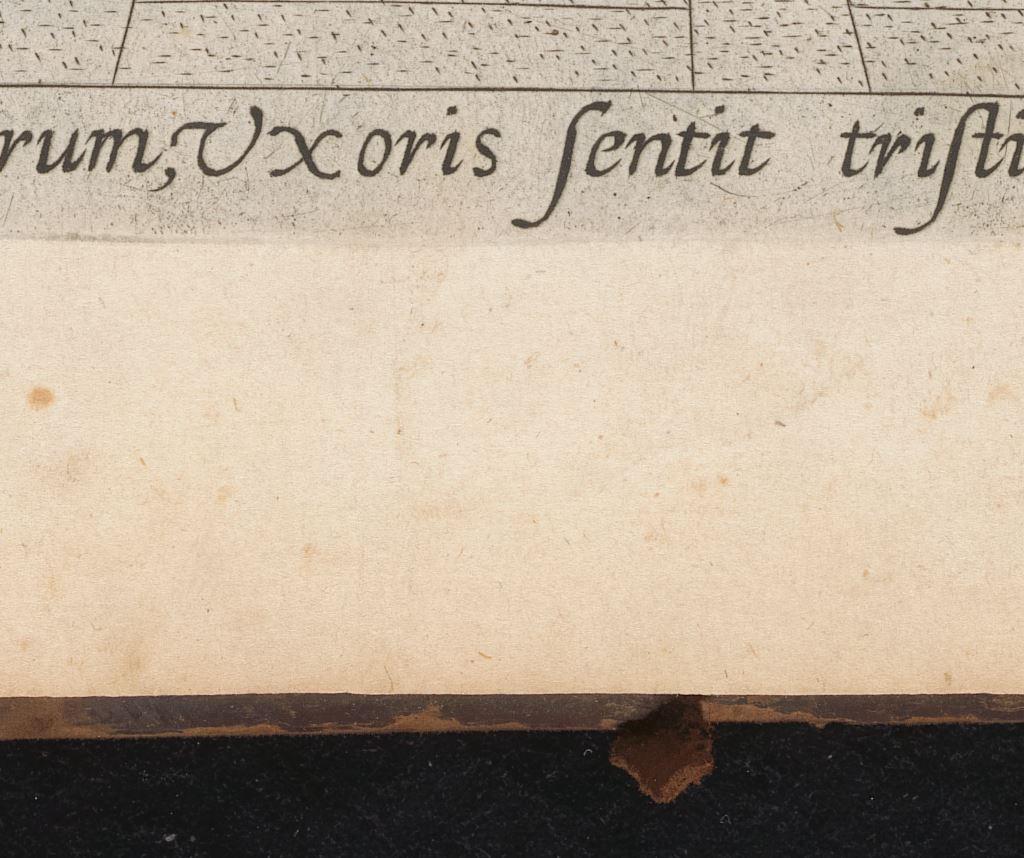 rum, Uxoris ſentit triſti